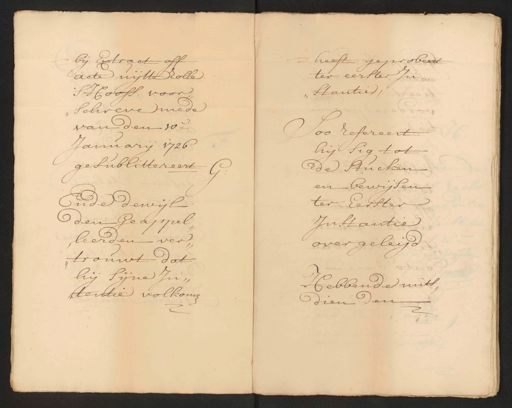 bij Extract off
acte uijtte Rolle
't Hooff voor
schreve mede
van den 10
Januarij 1726
gesublittereert G:
Ende dewijl
den Geappel
leerden ver„
„trouwt dat
hij sijne In„
stantie volkom
heeft geprobeert
ter eerster In
„stantie,
Soo refereert
hij sig tot
de Stucken
en bewijsen
ter Eerster
Instantie
overgeleijd
Hebbende mits„
dien den